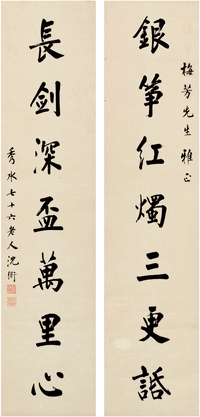 梅芳先生雅正
銀筝紅燭三更話
長劍深盃萬里心
秀水七十六老人沈衛